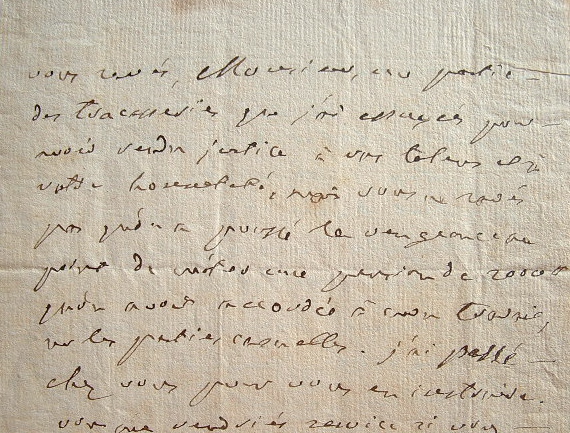 vous savés, Monsieur, une partie
des tracasseries que j'ai essuyés pour
avoir rendu justice à vos talens et à
votre honnêteté, mais vous ne savés
pas qu'on a poussé la vengeance au
point de m'ôter une pension de 2000#
qu'on avoit accordée à mon travail,
sur les parties casuelles. j'ai passé
chez vous pour vous en instruire.
vous me rendriés service si vous